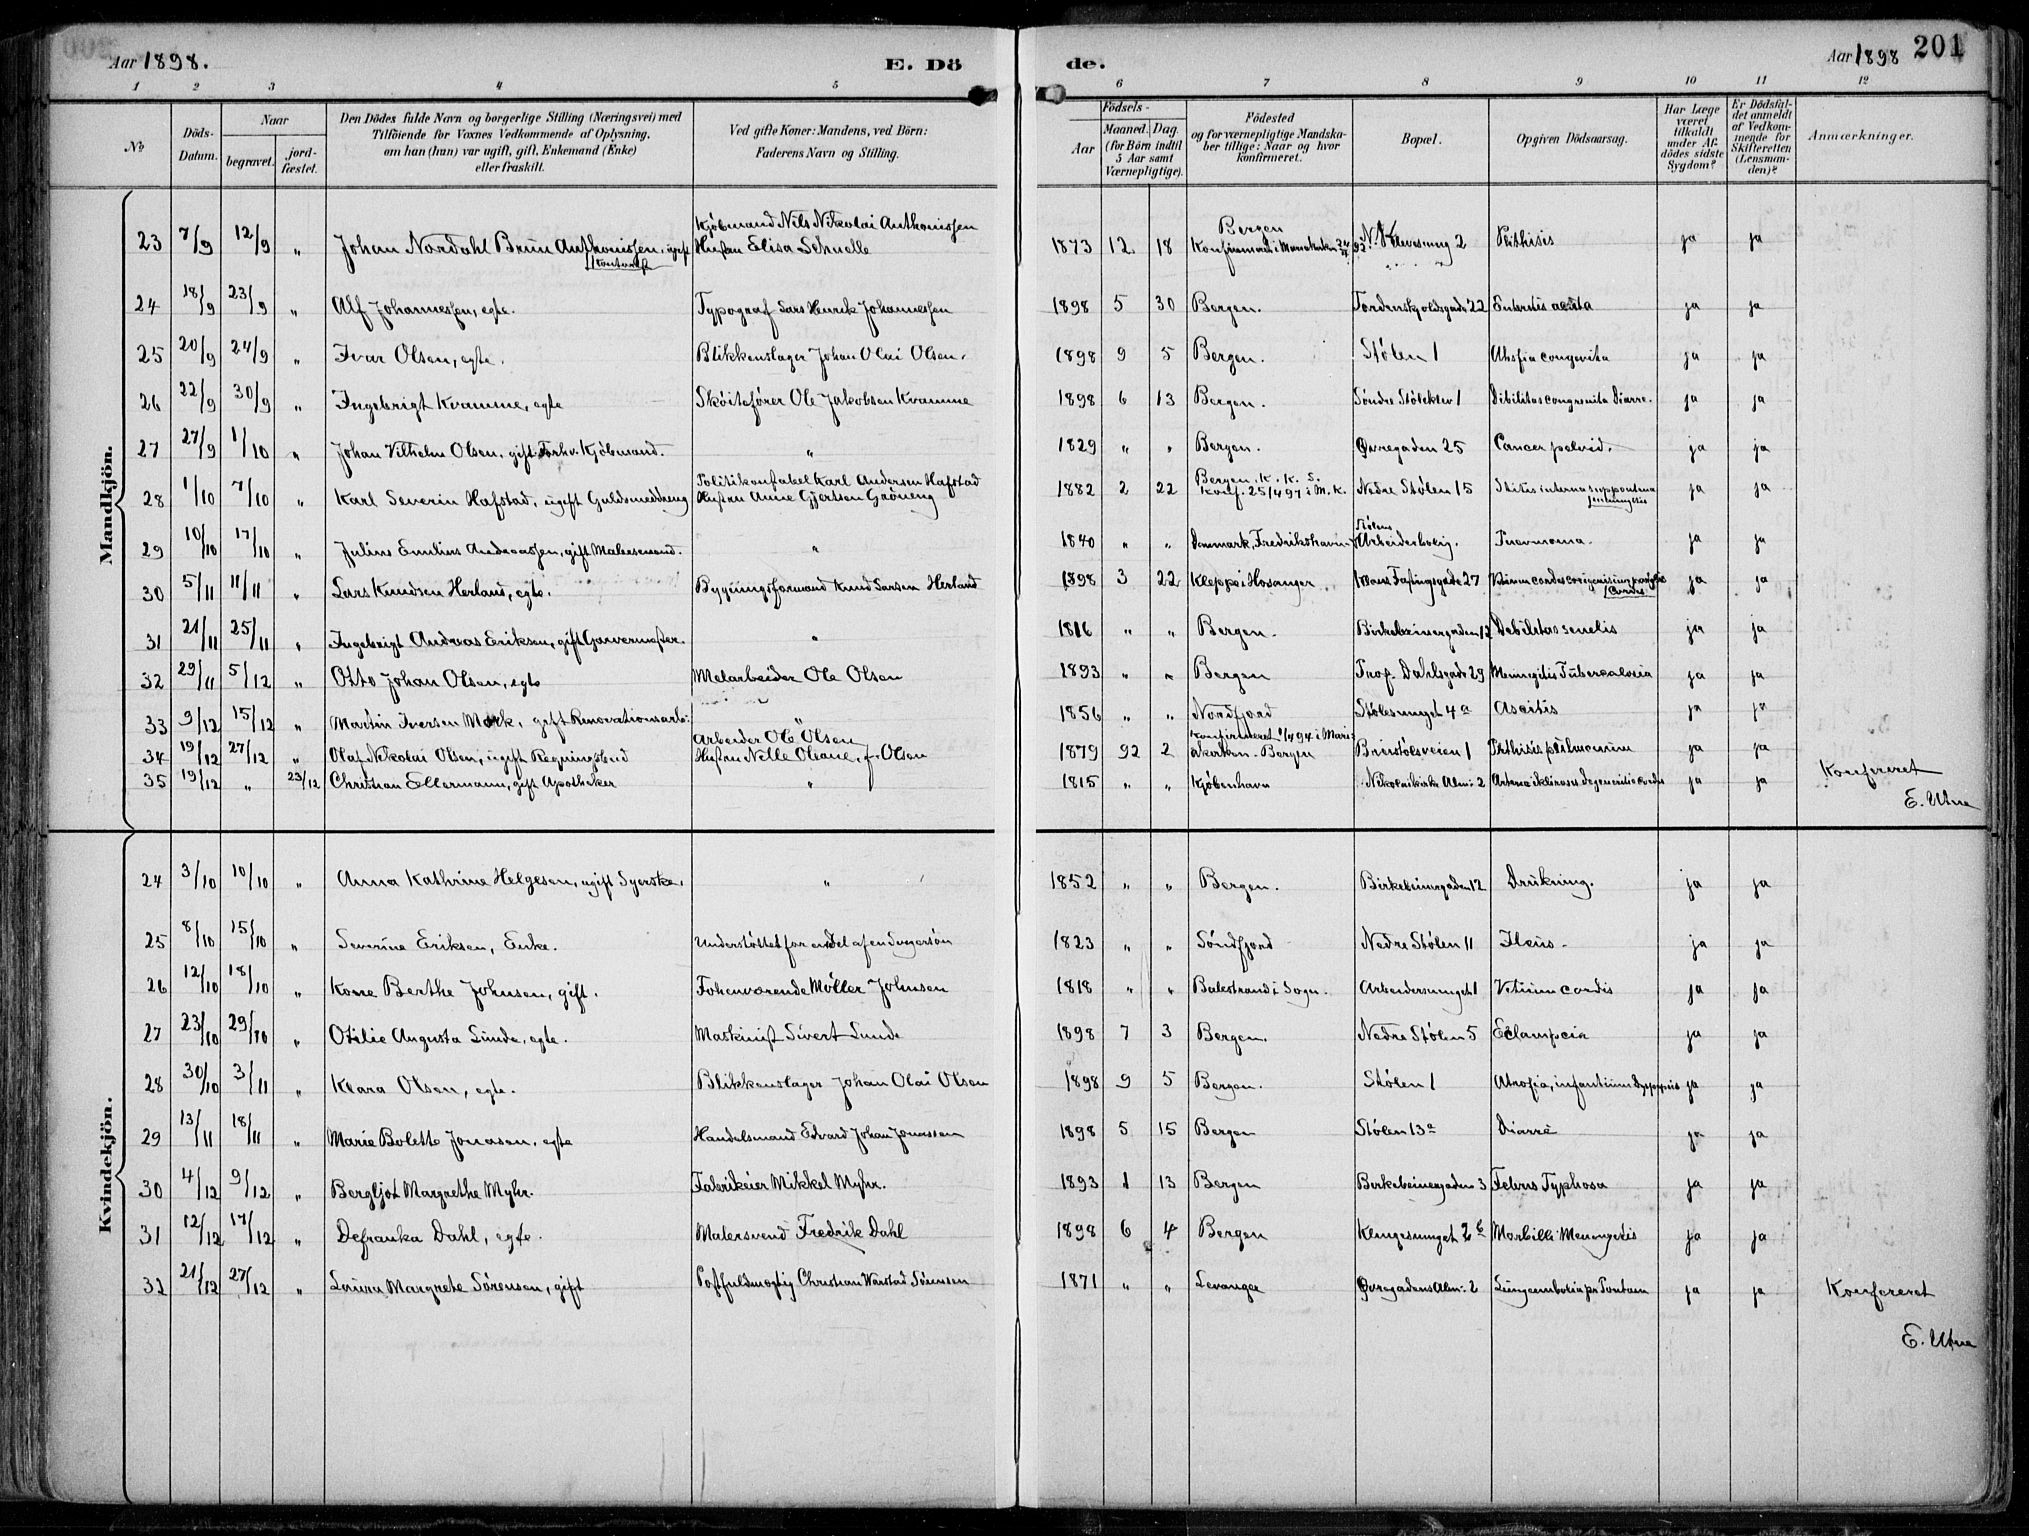 Aar 1898.
E. Dö
de.
Aar 1898
201
1 2 3 4 5 6 7 8 9 10 11 12
No
Döds-Datum.
Naar
begravet.
jord-fæstet.
Den Dödes fulde Navn og borgerlige Stilling (Næringsvei) med
Tilföiende for Voxnes Vedkommende af Oplysning,
om han (hun) var ugift, gift, Enkemand (Enke)
eller fraskilt.
Ved gifte Koner: Mandens, ved Börn:
Faderens Navn og Stilling.
Födsels-
Aar
Maaned. Dag.
(for Börn indtil
5 Aar samt
Værnepligtige).
Födested
og for værnepligtige Mandska-
ber tillige: Naar og hvor
konfirmeret.
Bopæl.
Opgiven Dödsaarsag.
Har Læge
været
tilkaldt
under Af-
dödes sidste
Sygdom?
Er Dödsfal-
det anmeldt
af Vedkom-
mende for
Skifteretten
(Lensman-
den)?
Anmærkninger.
Mandkjön.
23 7/9 12/9 " Johan Nordahl Brun Anthonissen, ugift Kontorist Kjøbmand Nils Nikolai Anthonissen Hustru Elisa Schnelle 1873 12 18 Bergen Konfirmeret i Mariakirken N. Klevesmug 2 Phthisis ja ja
24 18/9 23/9 " Alf Johannessen, egte. Typograf Lars Henrik Johannessen 1898 5 30 Bergen. Tordenskjoldsgade 22 Enteritis acuta ja ja
25 20/9 24/9 " Ivar Olsen, egte. Blikkenslager Johan Olai Olsen. 1898 9 5 Bergen. Stølen 1 congenita ja ja
26 22/9 30/9 " Ingebrigt Kvamme, egte Skøitefører Ole Jakobsen Kvamme 1898 6 13 Bergen. Søndre Støleklev 1 Debilitas congenita Diarre. ja ja
27 27/9 1/10 " Johan Vilhelm Olsen, gift Forhv. Kjøbmand. " 1829 " " Bergen. Øvregaden 25 Cancer pelvid. ja ja
28 1/10 7/10 " Karl Severin Hafstad, ugift Guldsmeddreng Politikonstabel Karl Andersen Hafstad Hustru Anne Gjertsen Grøneng 1882 2 22 Bergen. K. K. S. Konf. 25/4 97 i M. K. Nedre Stølen 15 Otitis interna ja ja
29 10/10 17/10 " Julius Emilius Andreassen, gift Malersvend. " 1840 " " Danmark, Fredrikshavn Stølens Arbeiderbolig. Pnevmonia. ja ja
30 5/11 11/11 " Lars Knudsen Herland, egte. Bygningsformand Knud Larsen Herland 1898 3 22 Kleppe i Hosanger Klaus Fastingsgade 27 Vitium cordis cordis ja ja
31 21/11 25/11 " Ingebrigt Andreas Eriksen, gift Garvermester. " 1816 " " Bergen. Birkebeinergaden 12 Debilitas senilis ja ja
32 29/11 5/12 " Otto Johan Olsen, egte Melarbeider Ole Olsen 1893 " " Bergen Prof. Dahlsgade 29 Meningitis Tuberculosia ja ja
33 9/12 15/12 " Martin Iversen Mørk, gift Renovationsarb: " 1856 " " Nordfjord Stølesmuget 4a Ascitis ja ja
34 19/12 27/12 " Olaf Nikolai Olsen, ugift Regningsbud Arbeider Ole Olsen Hustru Nelle Oleane, f. Olson 1879 92 2 Konfirmeret 8/4 94 i Maria kirken - Bergen Breistølsveien 1 Phthisis pulmonum ja ja
35 19/12 " 23/12 Christian Ellermann, gift Apotheker " 1815 " " Kjøbenhavn Nikolaikirke Alm: 2 ja ja Konfereret
E. Utne
Kvindekjön.
24 3/10 10/10 " Anna Kathrine Helgesen, ugift Syerske. " 1852 " " Bergen. Birkebeinergaden 12 Drukning. ja ja
25 8/10 15/10 " Severine Eriksen, Enke. Understøttet for en Del af en Svigersøn 1823 " " Søndfjord Nedre Stølen 11 Ileus - ja ja
26 12/10 18/10 " Kone Berthe Johnsen, gift. Forhenværende Møller Johnsen 1818 " " Balestrand i Sogn. Arbeidersmuget 1 Vitium cordis ja ja
27 23/10 29/10 " Otilie Augusta Lunde, egte. Maskinist Sivert Lunde 1898 7 3 Bergen. Nedre Stølen 5 Eclampsia ja ja
28 30/10 3/11 " Klara Olsen, egte. Blikkenslager Johan Olai Olsen 1898 9 5 Bergen. Stølen 1 Atrofia, infantium Dyspepsis ja ja
29 13/11 18/11 " Marie Bolette Jonasen, egte Handelsmand Edvard Johan Jonassen 1898 5 15 Bergen Stølen 13a Diarre ja ja
30 4/12 9/12 " Bergljot Margrethe Myhr. Fabrikeier Mikkel Myhr. 1893 1 13 Bergen Birkebeinergaden 3 Febris Typhosa ja ja
31 12/12 17/12 " Defranka Dahl, egte. Malersvend Fredrik Dahl 1898 6 4 Bergen Klingesmuget 2b Morbilli Meningitis ja ja
32 21/12 27/12 " Laura Margrete Sørensen, gift Postfuldmægtig Christian Warstad Sørensen 1871 " " Levanger Øvregadens Alm: 2 Lungeemboli ja ja Konfereret
E. Utne